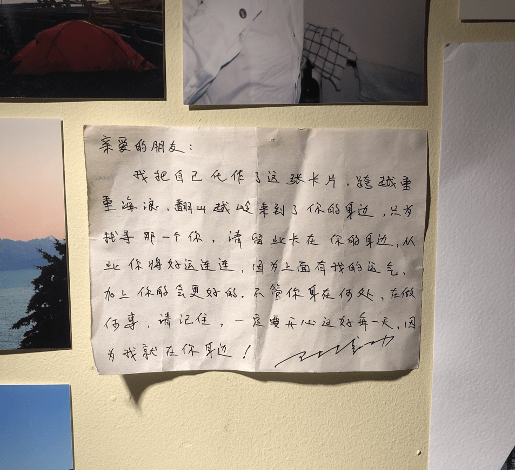 亲爱的朋友：
我把自己化作了这张卡片，跨越重
重海浪，翻山越岭来到了你的身边，只为
找寻那一个你，请留此卡在你的身边，从
此你将好运连连，因为上面有我的运气，
加上你的会更好的。不管你身在何处，在做
何事，请记住，一定要开心过好每一天，因
为我就在你身边！